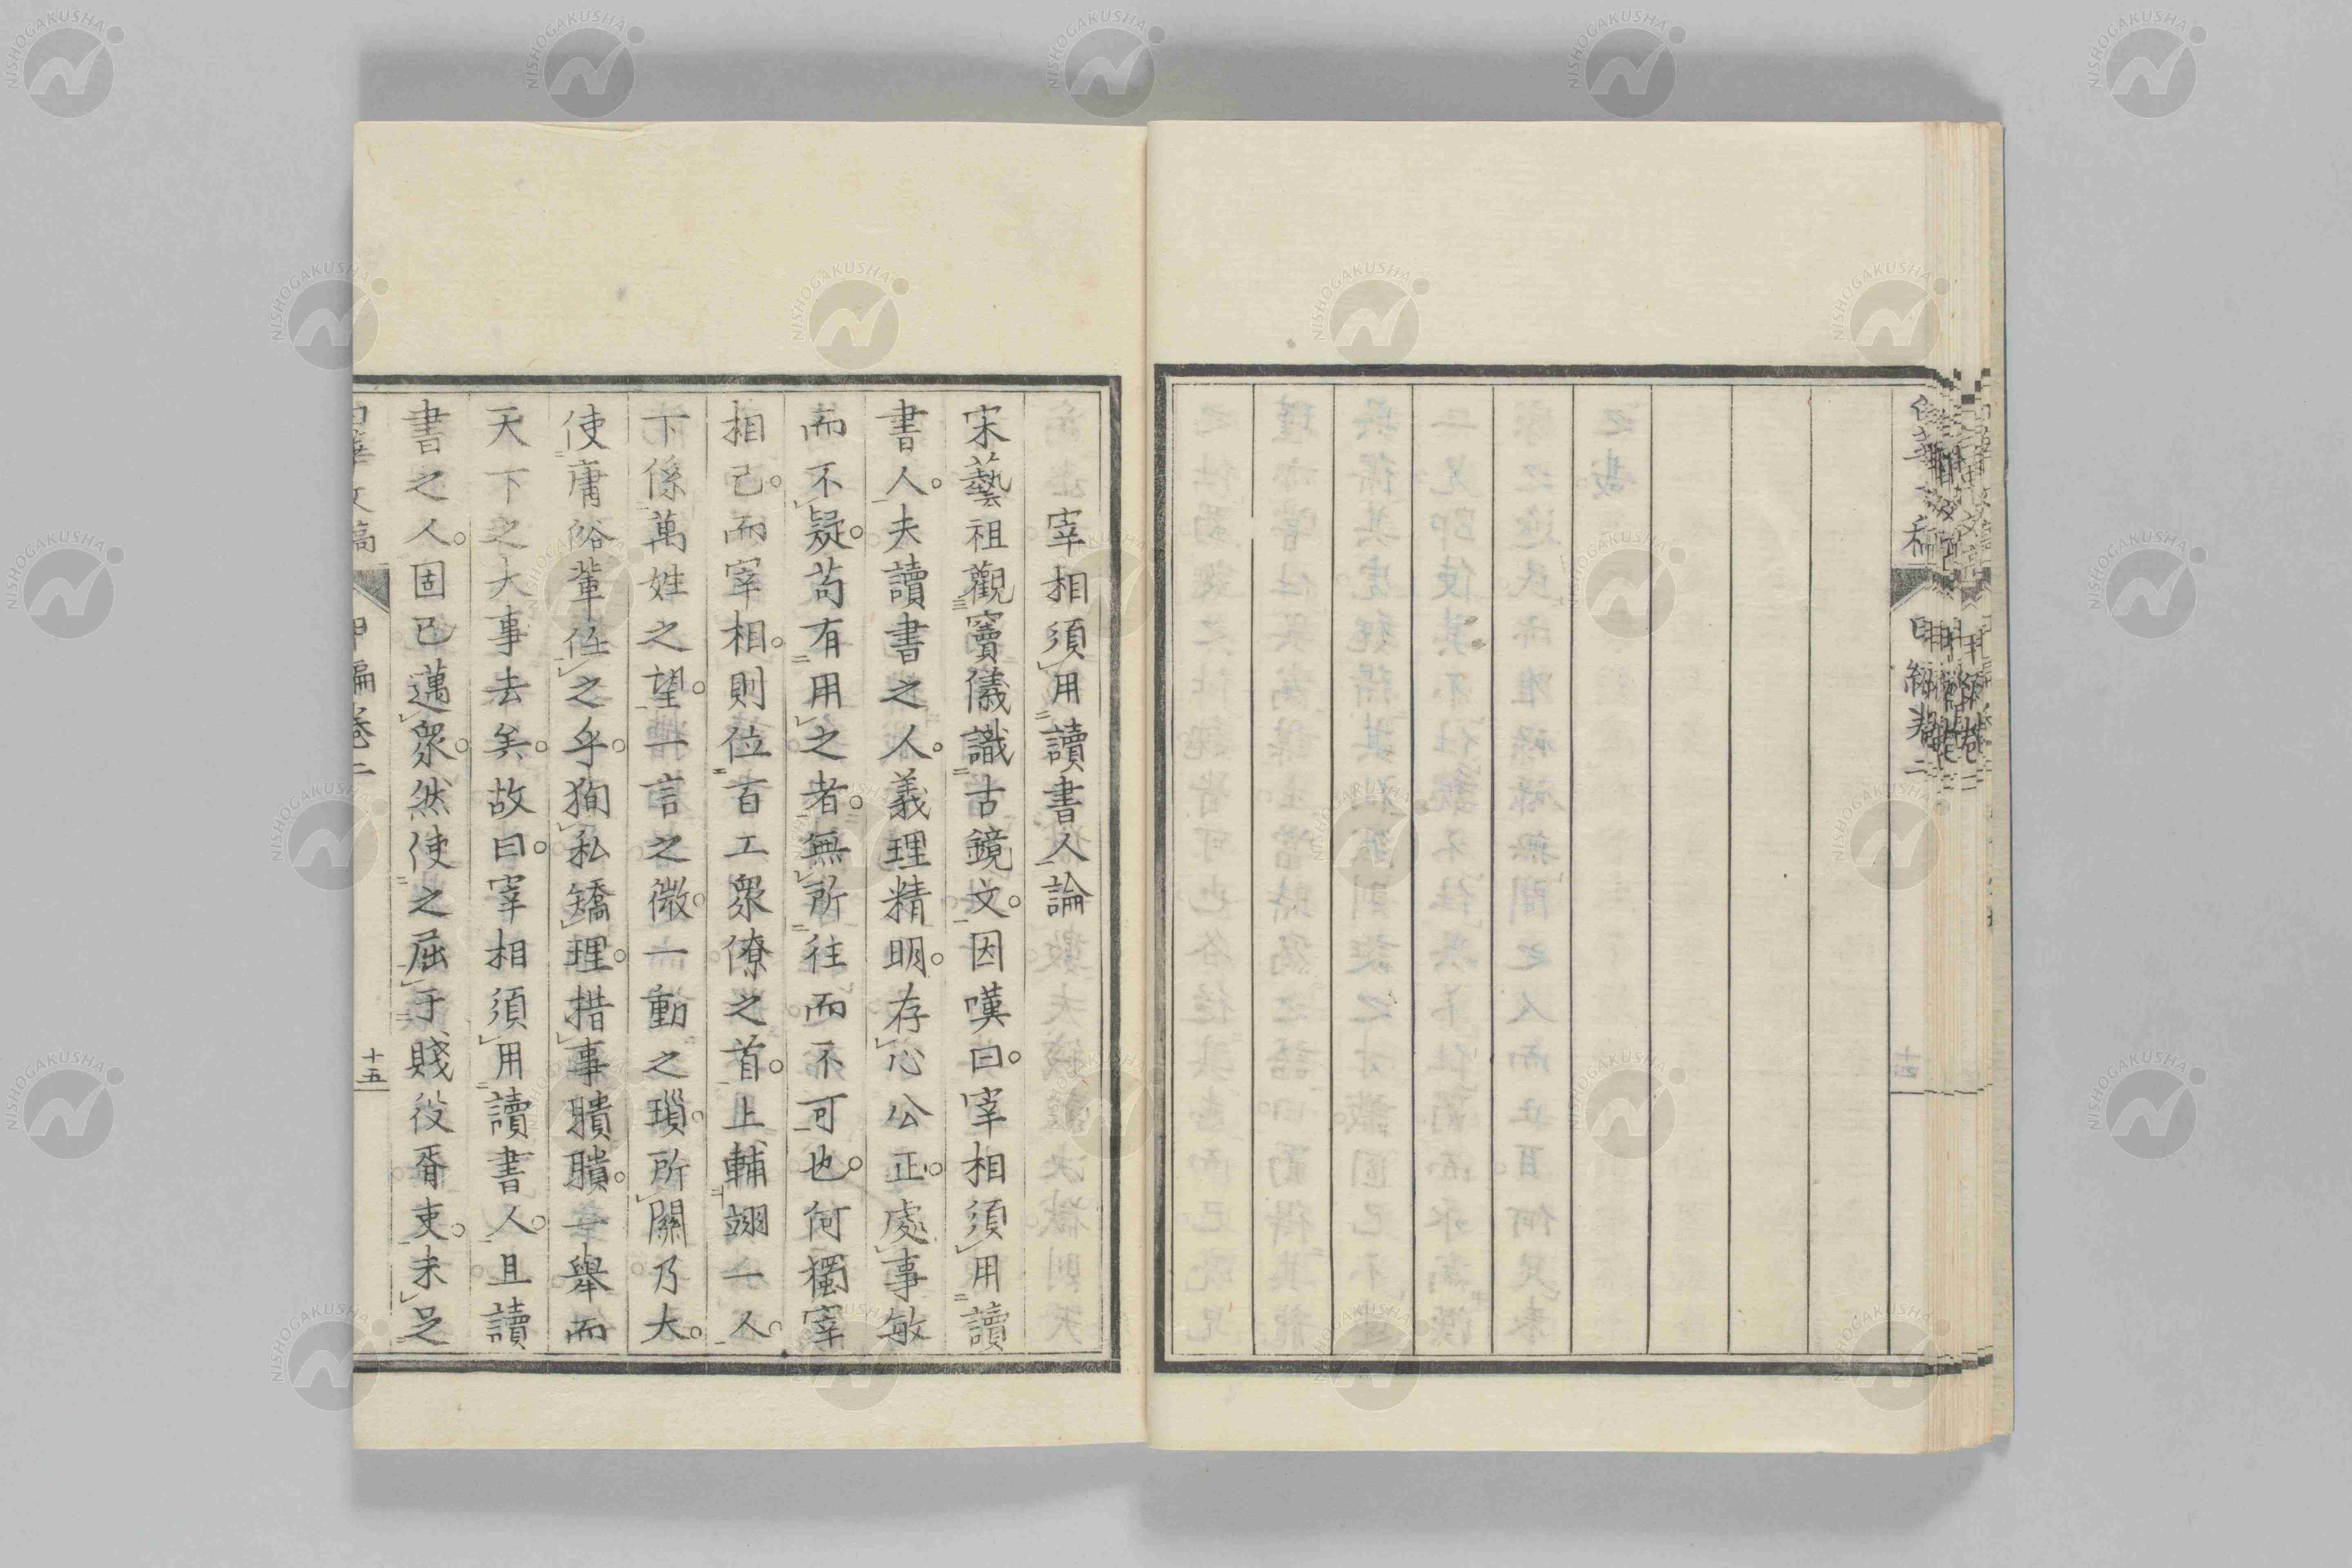 宰相須用讀書人論
宋藝祖觀竇儀識古鏡文。因嘆曰。宰相須用讀
書人。夫讀書之人。義理精明。存心公正。處事敏
而不疑。苟有用之者。無所往而不可也。何獨宰
相已。而宰相。則位百工衆僚之首。上輔翊一人。
下係萬姓之望。一言之微。一動之瑣。所關乃大。
使庸俗輩任之乎。狥私矯理。措事聵聵。一舉而
天下之大事去矣。故曰。宰相須用讀書人。且讀
書之人。固已邁衆。然使之屈于賤役胥吏。未足
白華文稿 甲編卷二
十五
NISHOGAKUSHA